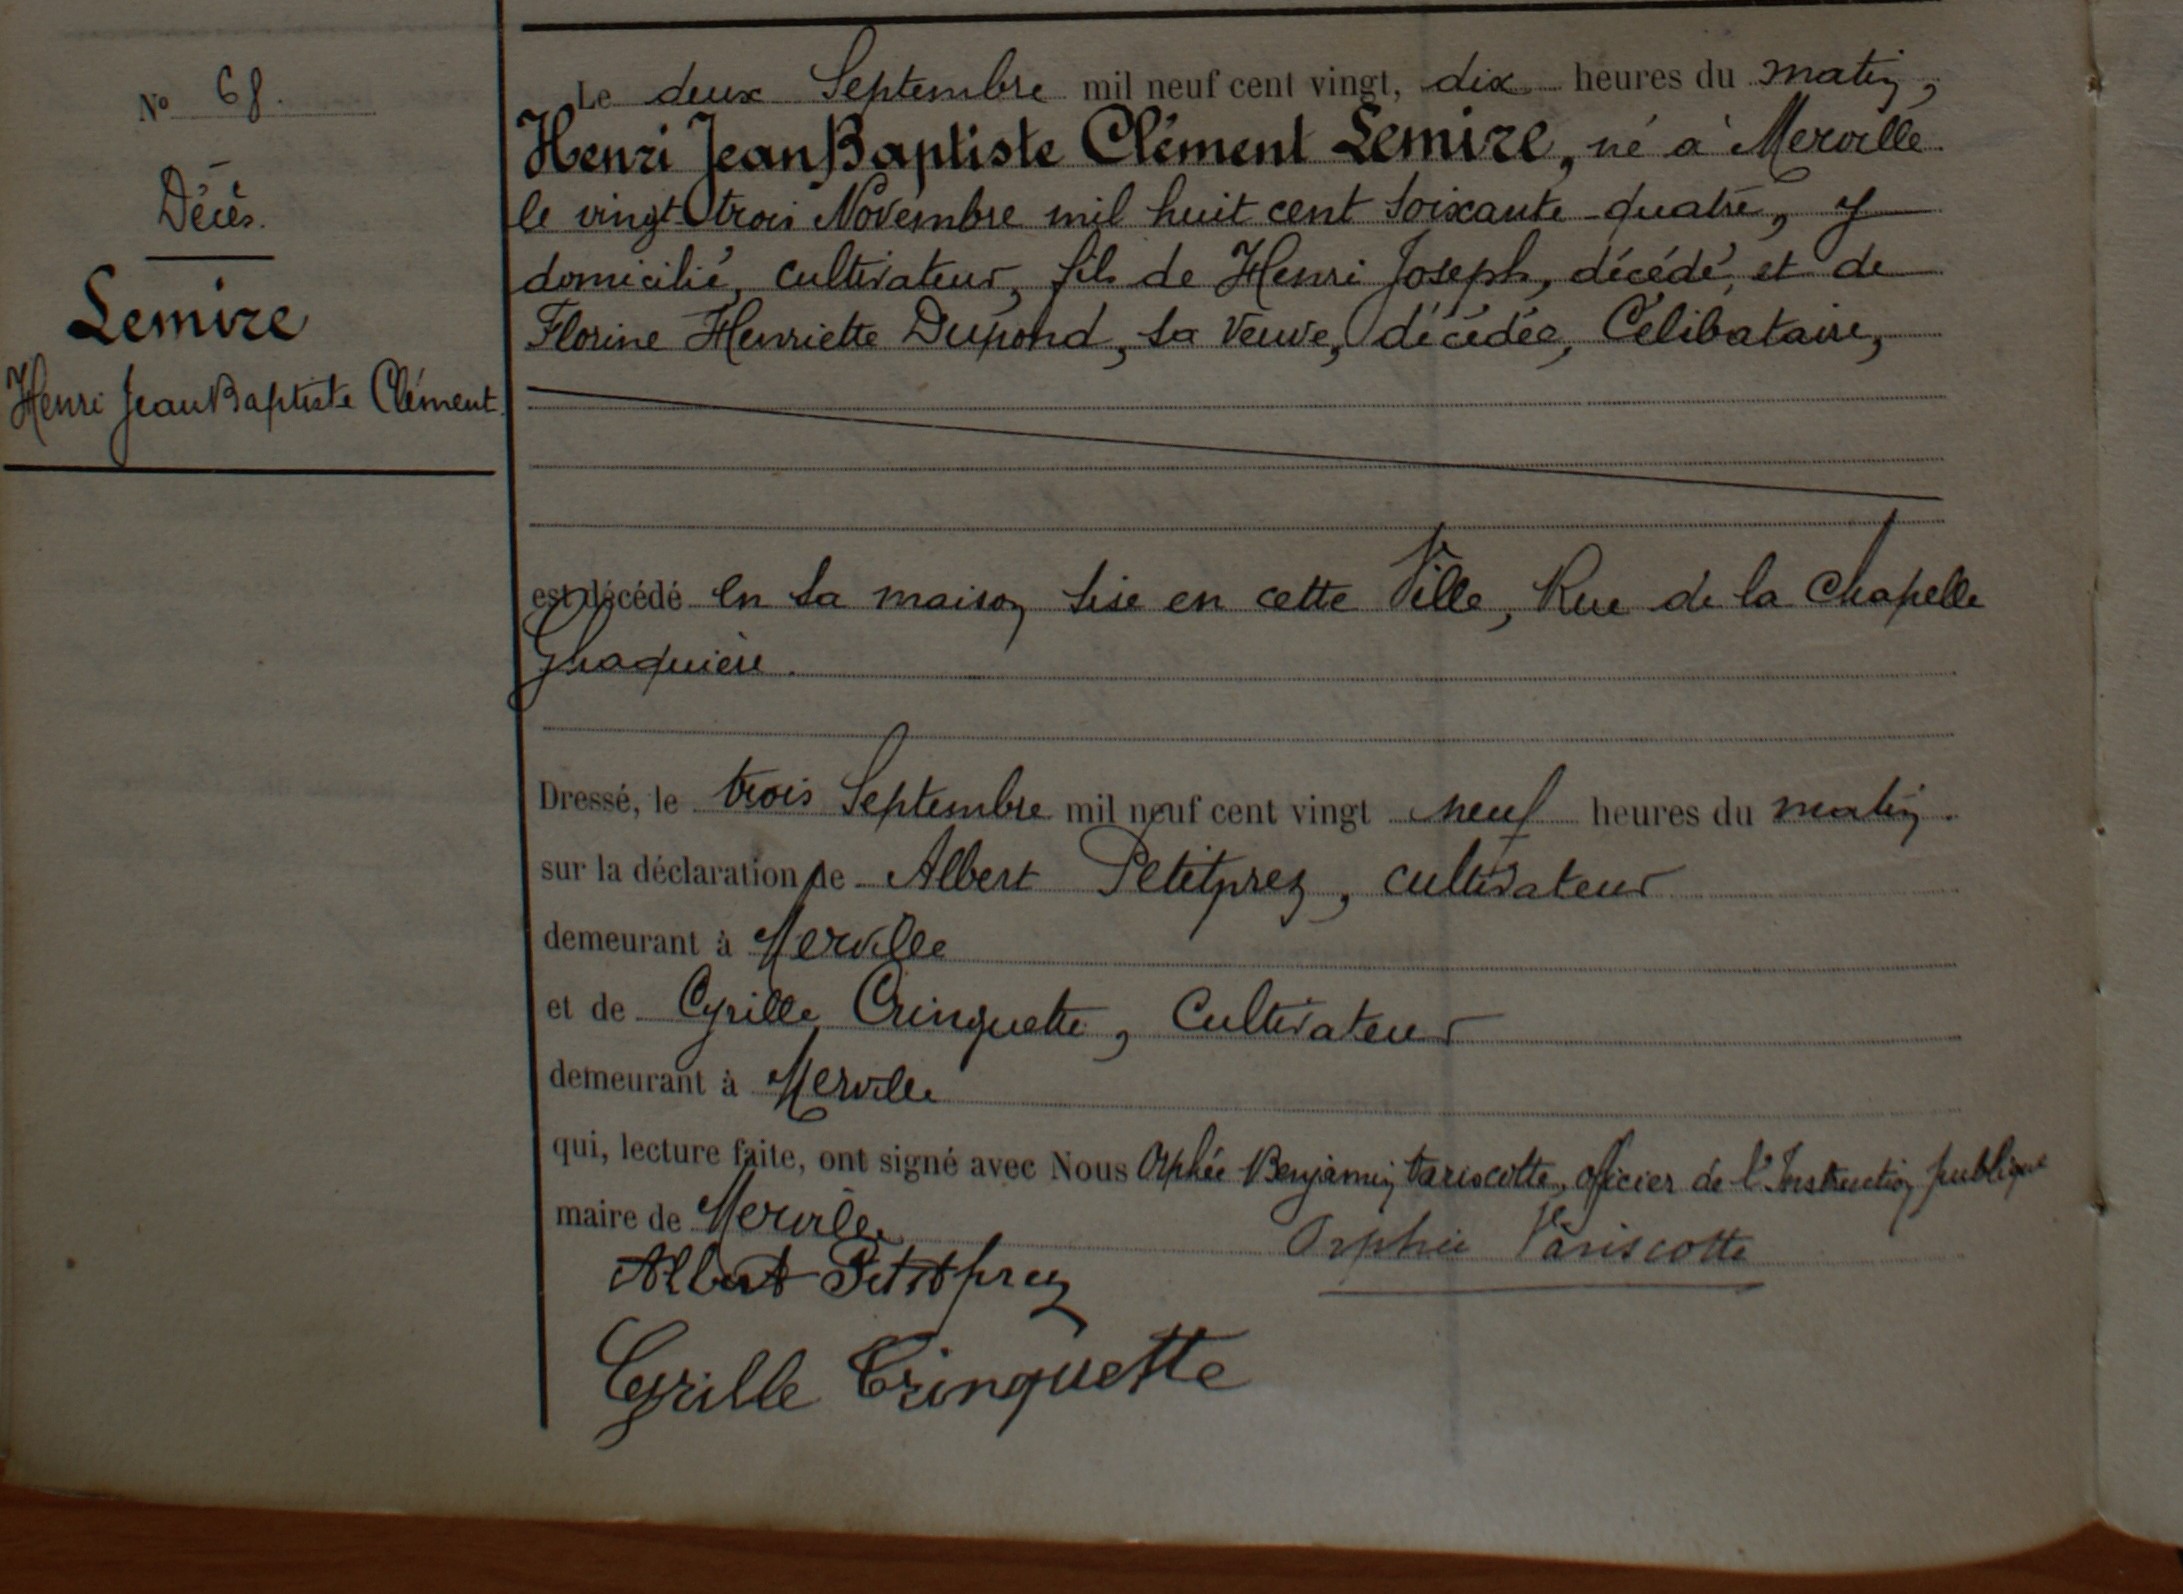 N° 68.
Décès.
Lemire
Henri Jean Baptiste Clément
Le deux Septembre mil neuf cent vingt, dix heures du matin,
Henri Jean Baptiste Clément Lemire, né à Merville
le vingt trois Novembre mil huit cent soixante quatre, y
domicilié, cultivateur, fils de Henri Joseph, décédé, et de
Florine Henriette Dupond, sa veuve, décédée, Célibataire,
est décédé en sa maison sise en cette Ville, Rue de la Chapelle
Dressé, le trois Septembre mil neuf cent vingt neuf heures du matin.
sur la déclaration de Albert Petitprez, cultivateur
demeurant à Merville
et de Cyrille Crinquette, Cultivateur
demeurant à Merville
qui, lecture faite, ont signé avec Nous Orphée Benjamin Pariscotte, officier de l'Instruction publique
maire de Merville
Orphée Pariscotte
Albert Petitprez
Cyrille Crinquette